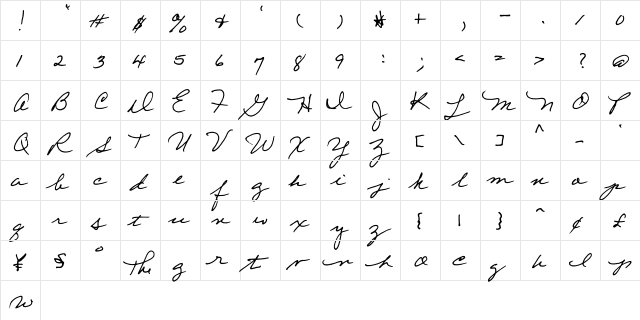 ! " # $ % & ' ( ) * + , – . / 0
1 2 3 4 5 6 7 8 9 : ; < = > ? @
A B C D E F G H I J K L M N O P
Q R S T U V W X Y Z [ \ ] ^ - '
a b c d e f g h i j k l m n o p
q r s t u v w x y z { | } ^ ¢ £
¥ § ° The g r t r n h o e g k l p
w